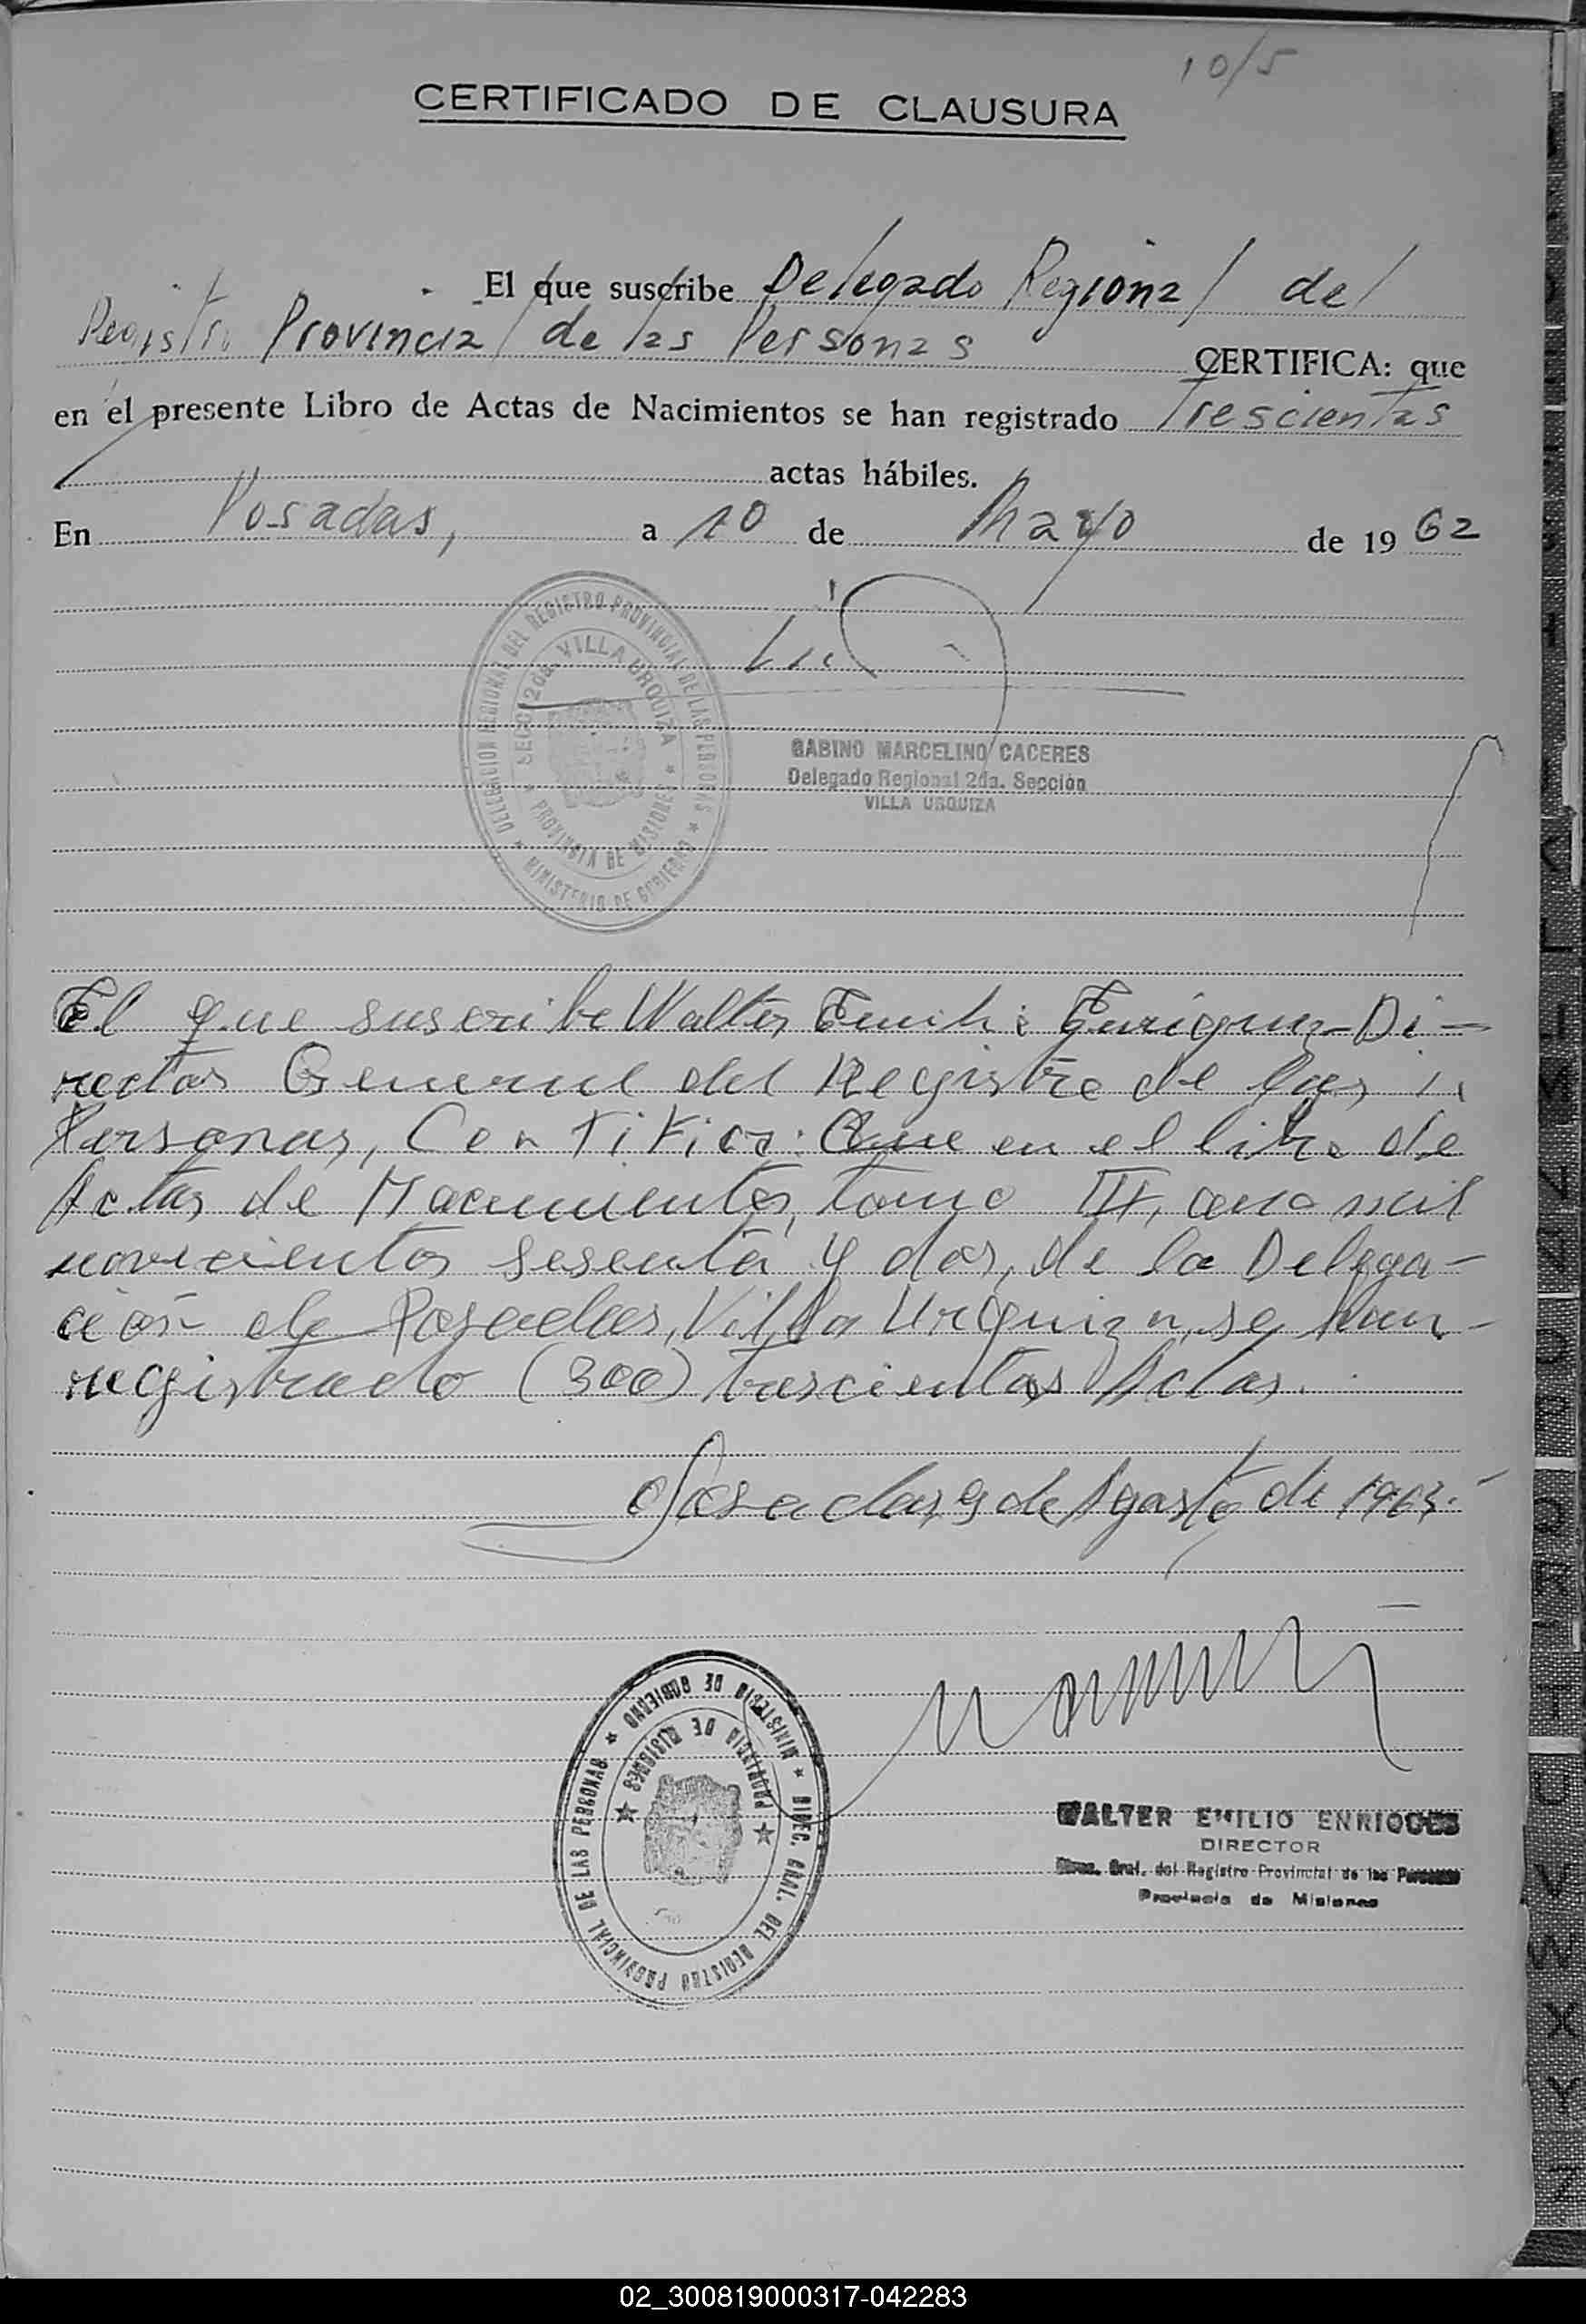 10/5
CERTIFICADO DE CLAUSURA
El que suscribe Delegado Regional del
Registro Provincial de las Personas CERTIFICA: que
en el presente Libro de Actas de Nacimientos se han registrado Trescientas
actas hábiles.
En Posadas, a 10 de Mayo de 1962
DELEGACION REGIONAL DEL REGISTRO PROVINCIAL DE LAS PERSONAS * MINISTERIO DE GOBIERNO *
SECC. 2da. VILLA URQUIZA * PROVINCIA DE MISIONES *
GABINO MARCELINO CACERES
Delegado Regional 2da. Sección
VILLA URQUIZA
El que suscribe Walter Emilio Enriques - Di-
rector General del Registro de las
Personas, Certifica: Que en el libro de
Actas de Nacimientos, tomo III, año mil
novecientos sesenta y dos, de la Delega-
ción de Posadas, Villa Urquiza, se han
registrado (300) trescientas Actas.
Posadas, 9 de Agosto de 1963.
DIREC. GRAL. DEL REGISTRO PROVINCIAL DE LAS PERSONAS * MINISTERIO DE GOBIERNO *
PROVINCIA DE MISIONES
WALTER EMILIO ENRIQUES
DIRECTOR
Direc. Gral. del Registro Provincial de las Personas
Provincia de Misiones
02_300819000317-042283